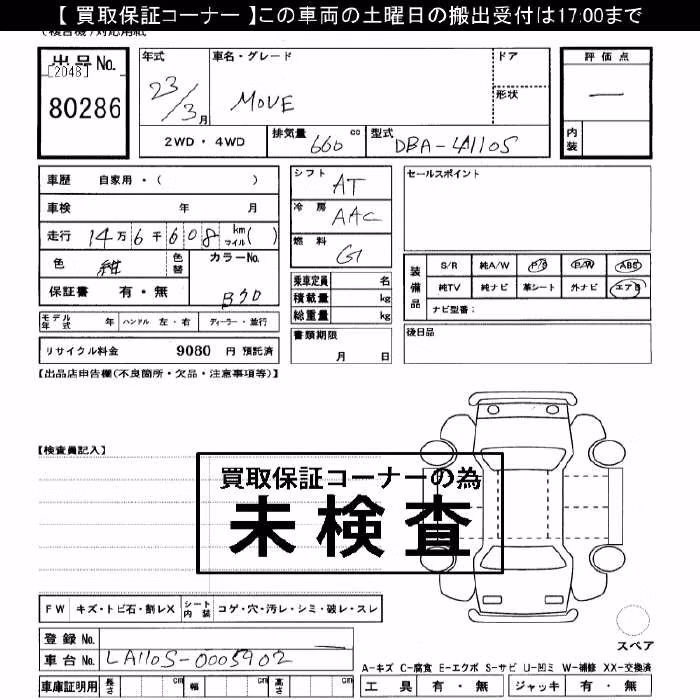 【 買取保証コーナー 】この車両の土曜日の搬出受付は17:00まで
出品No.
[2048]
80286
年式
23/3月
車名・グレード
MOVE
ドア
形状
2WD・4WD
排気量 660 cc
型式 DBA-LA110S
評価点
—
内装
車歴 自家用・( )
車検 年 月
走行 14万6千608 km マイル( )
色 紺
色替
カラーNo.
B70
保証書 有・無
モデル年式 年 ハンドル 左・右 ディーラー・並行
リサイクル料金 9080 円 預託済
シフト AT
冷房 AAC
燃料 G
乗車定員 名
積載量 kg
総重量 kg
書類期限
月 日
セールスポイント
装備品
S/R 純A/W P/S P/W ABS
純TV 純ナビ 革シート 外ナビ エアB
ナビ型番：
後日品
【出品店申告欄(不良箇所・欠品・注意事項等)】
【検査員記入】
買取保証コーナーの為
未検査
FW キズ・トビ石・割レX シート内装 コゲ・穴・汚レ・シミ・破レ・スレ
登録 No.
車台 No. LA110S-0005902
車庫証明用 長さ cm 幅 cm 高さ cm
スペア
A-キズ C-腐食 E-エクボ S-サビ U-凹ミ W-補修 XX-交換済
工具 有・無 ジャッキ 有・無